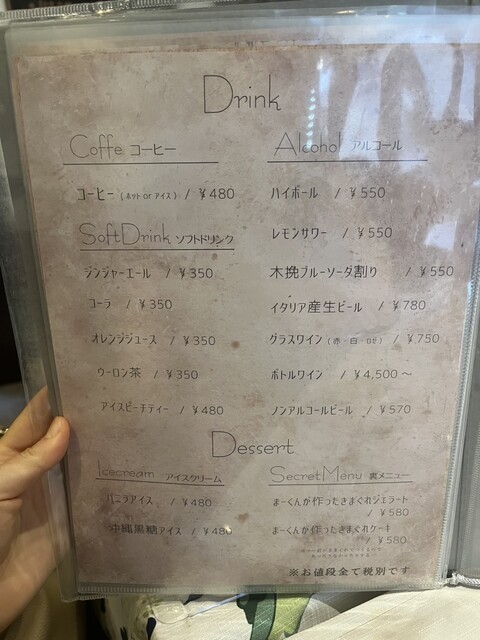 Drink
Coffe コーヒー
コーヒー (ホット or アイス) / ¥480
SoftDrink ソフトドリンク
ジンジャーエール / ¥350
コーラ / ¥350
オレンジジュース / ¥350
ウーロン茶 / ¥350
アイスピーチティー / ¥480
Alcohol アルコール
ハイボール / ¥550
レモンサワー / ¥550
木挽ブルーソーダ割り / ¥550
イタリア産生ビール / ¥780
グラスワイン (赤・白・ロゼ) / ¥750
ボトルワイン / ¥4,500〜
ノンアルコールビール / ¥570
Dessert
Icecream アイスクリーム
バニラアイス / ¥480
沖縄黒糖アイス / ¥480
SecretMenu 裏メニュー
まーくんが作ったきまぐれジェラート
/ ¥580
まーくんが作ったきまぐれケーキ
/ ¥580
※お値段全て税別です